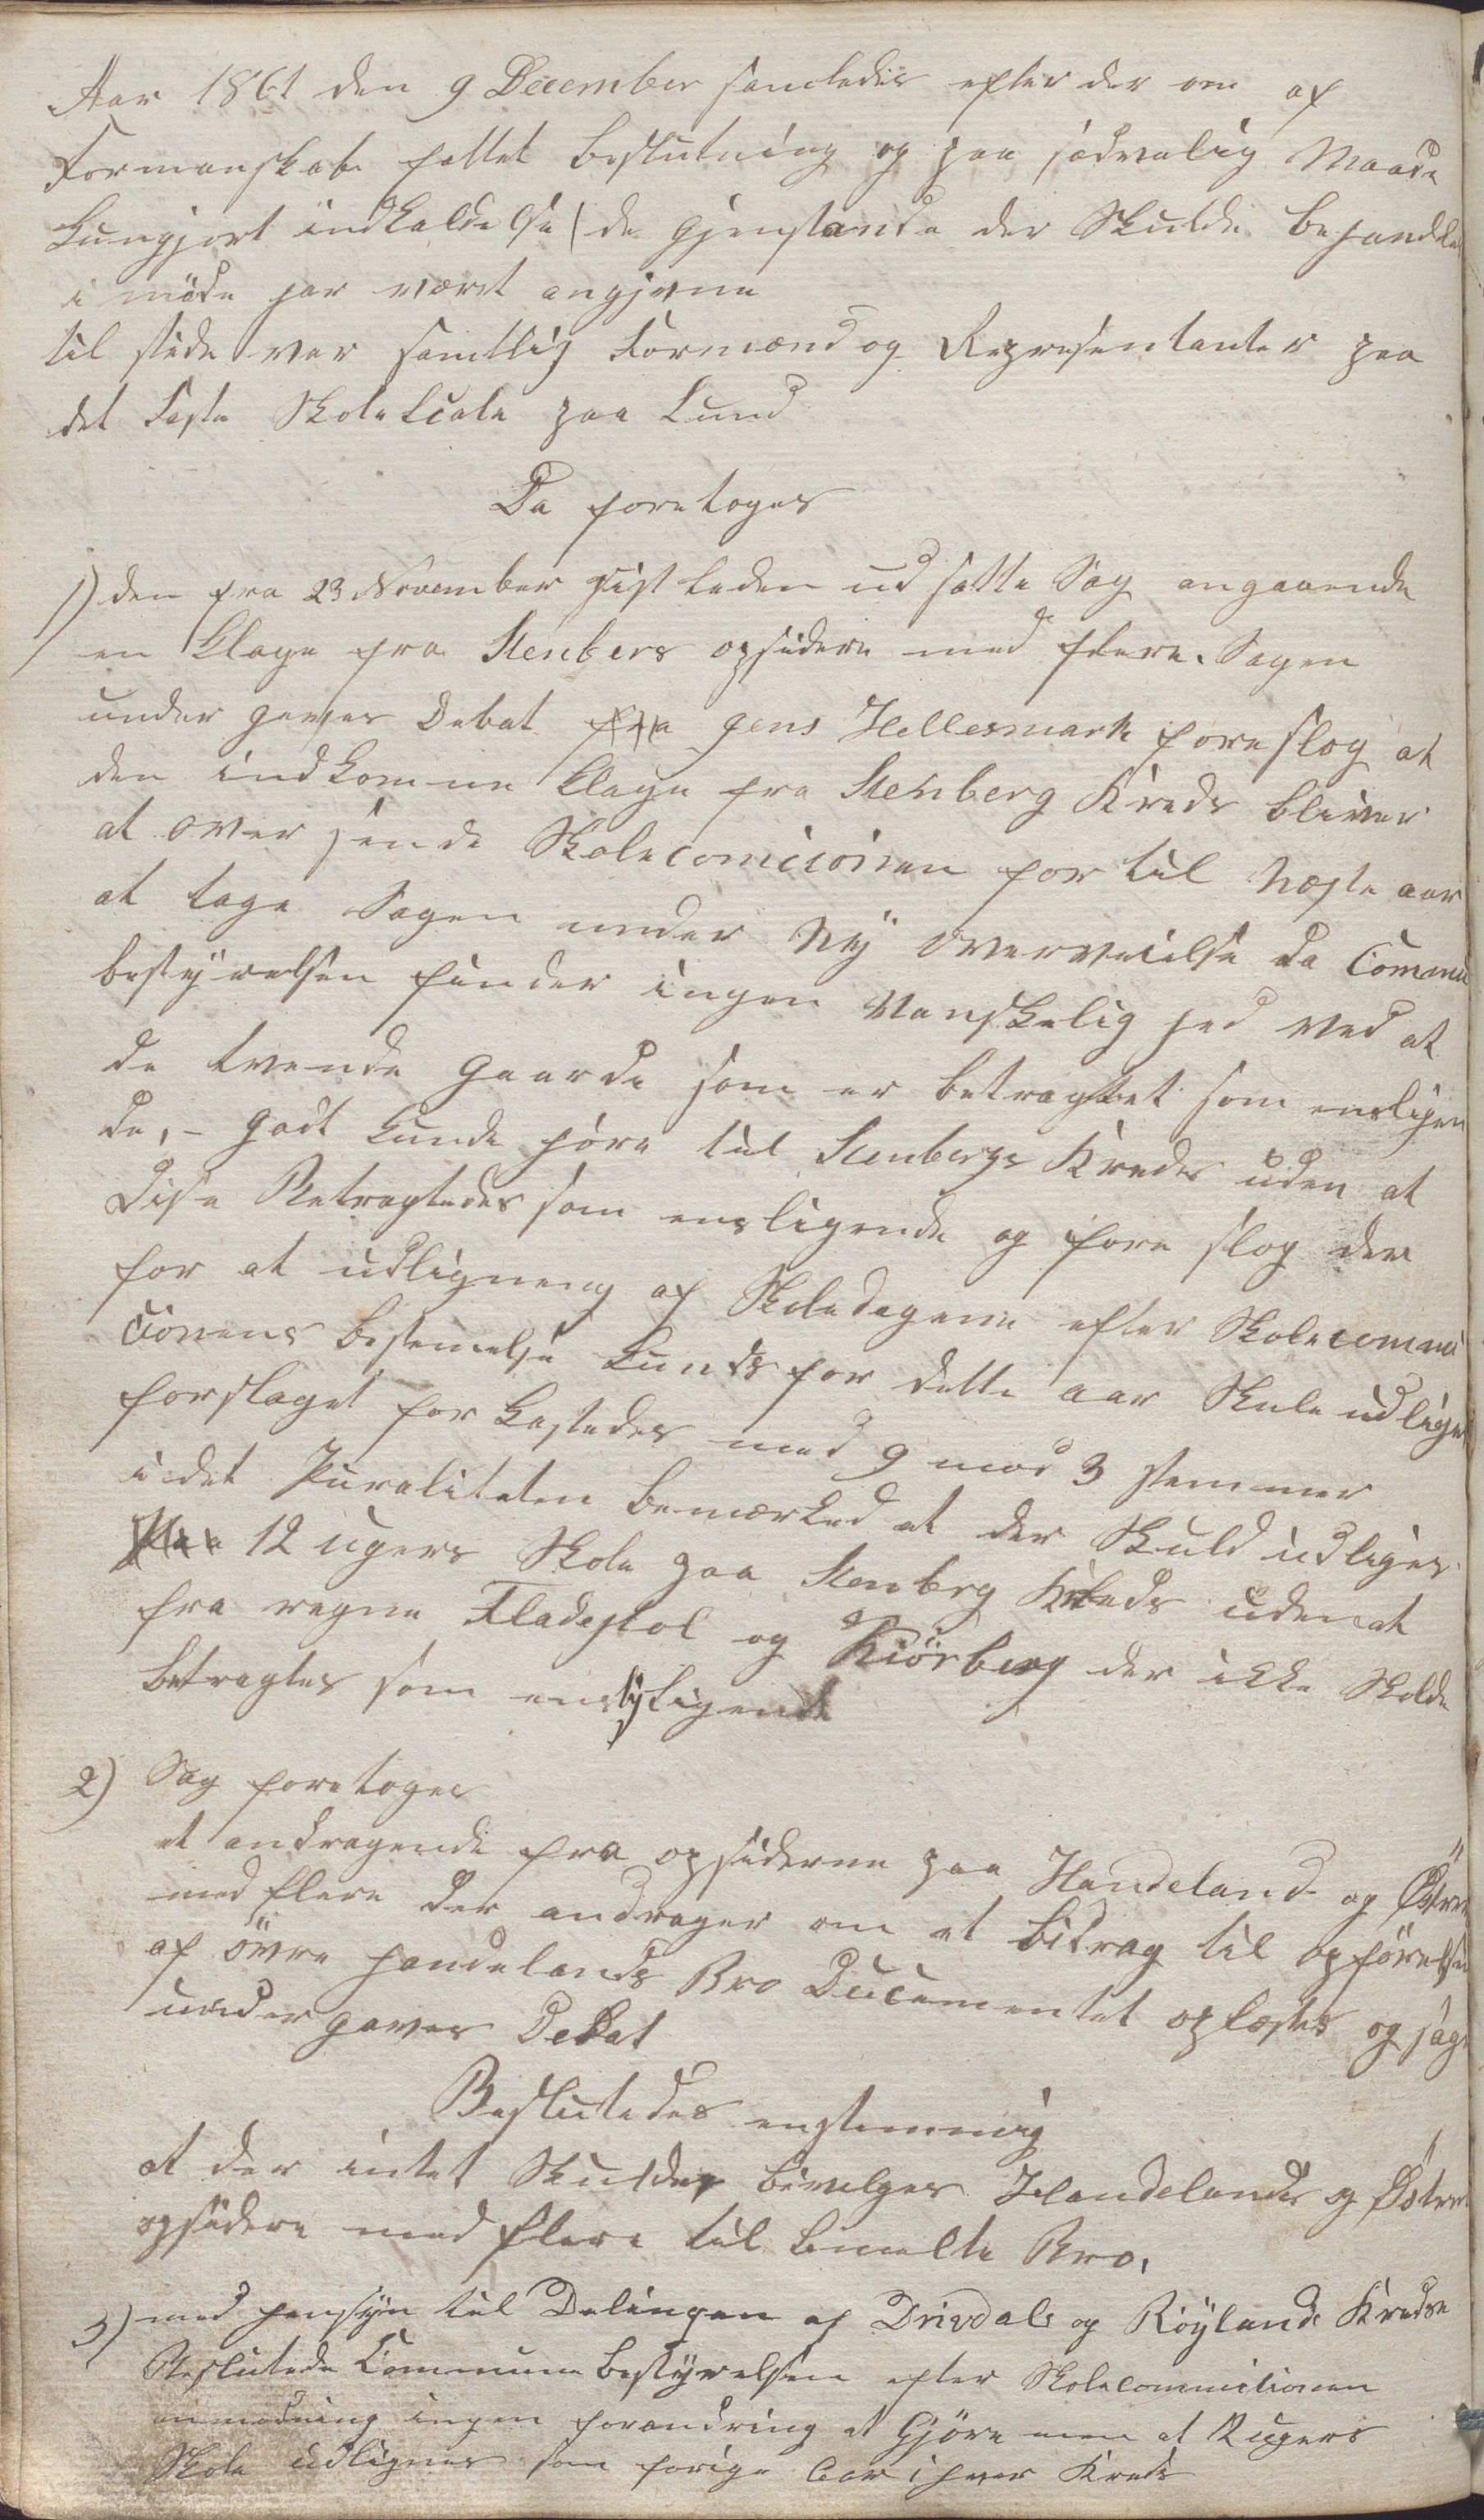 Aar 1861 den 9 December samledes efter der om af
Formanskab fattet beslutning og paa sædvalig Maade
kungjort indkaldelse / de gjenstande der Skulde behandles
i møde har været angivne
til stede var samtlig Formænd og Representanter paa
det Faste Skole Locale paa Lund
Da foretoges
1) den fra 23 November sist leden ud satte Sag angaaende
en klage fra Stenbergs opsidere med flere. Sagen
under gaves Debat Jens Hellesmark fore slog at
den indkomne klage fra Stenberg Kreds bliver
at over sende Skolecomicionen for til Næste aar
at tage Sagen under Ny overveielse da Commu
bestyrelsen finder ingen Vanskelig hed ved at
de tvende Gaarde som er betragtet som ensligen
de, - godt kunde høre til Stenbergs Kreds uden at
Dise Betragtedes som ensligende og fore slog der
for at udligneng af Skoledagene efter Skolecommi
cionens bestemelse kunds for dette aar Skule udlignes
forslaget for kastedes med 9 mod 3 stemmer
i det Puraliteten bemærked at der Skuld udlignes
12 ugers Skole paa Stenberg Kreds uden at
fra regne Fladestol og Kiørberg der ikke Skolde
betragtes som ensligende
2) Sag foretoges
et andragende fra opsiderne paa Handeland og Østre
med flere der andrager om et bidrag til opførelsen
af øvre handelands Bro Ducumentet oplæstes og sag
under gaves Debat
Beslutedes enstemmig
at der intet Skulde bevilges Handelands og Østre
opsidere med flere til bemelte Bro.
3) med hensyn til Delingen af Drivdals og Røylands Kredse
Beslutede Commune bestyrelsen efter Skolecommitionen
anmodning ingen forandring at Gjøre men at 12 ugers
Skole udlignes som forige Aar i hver Kreds